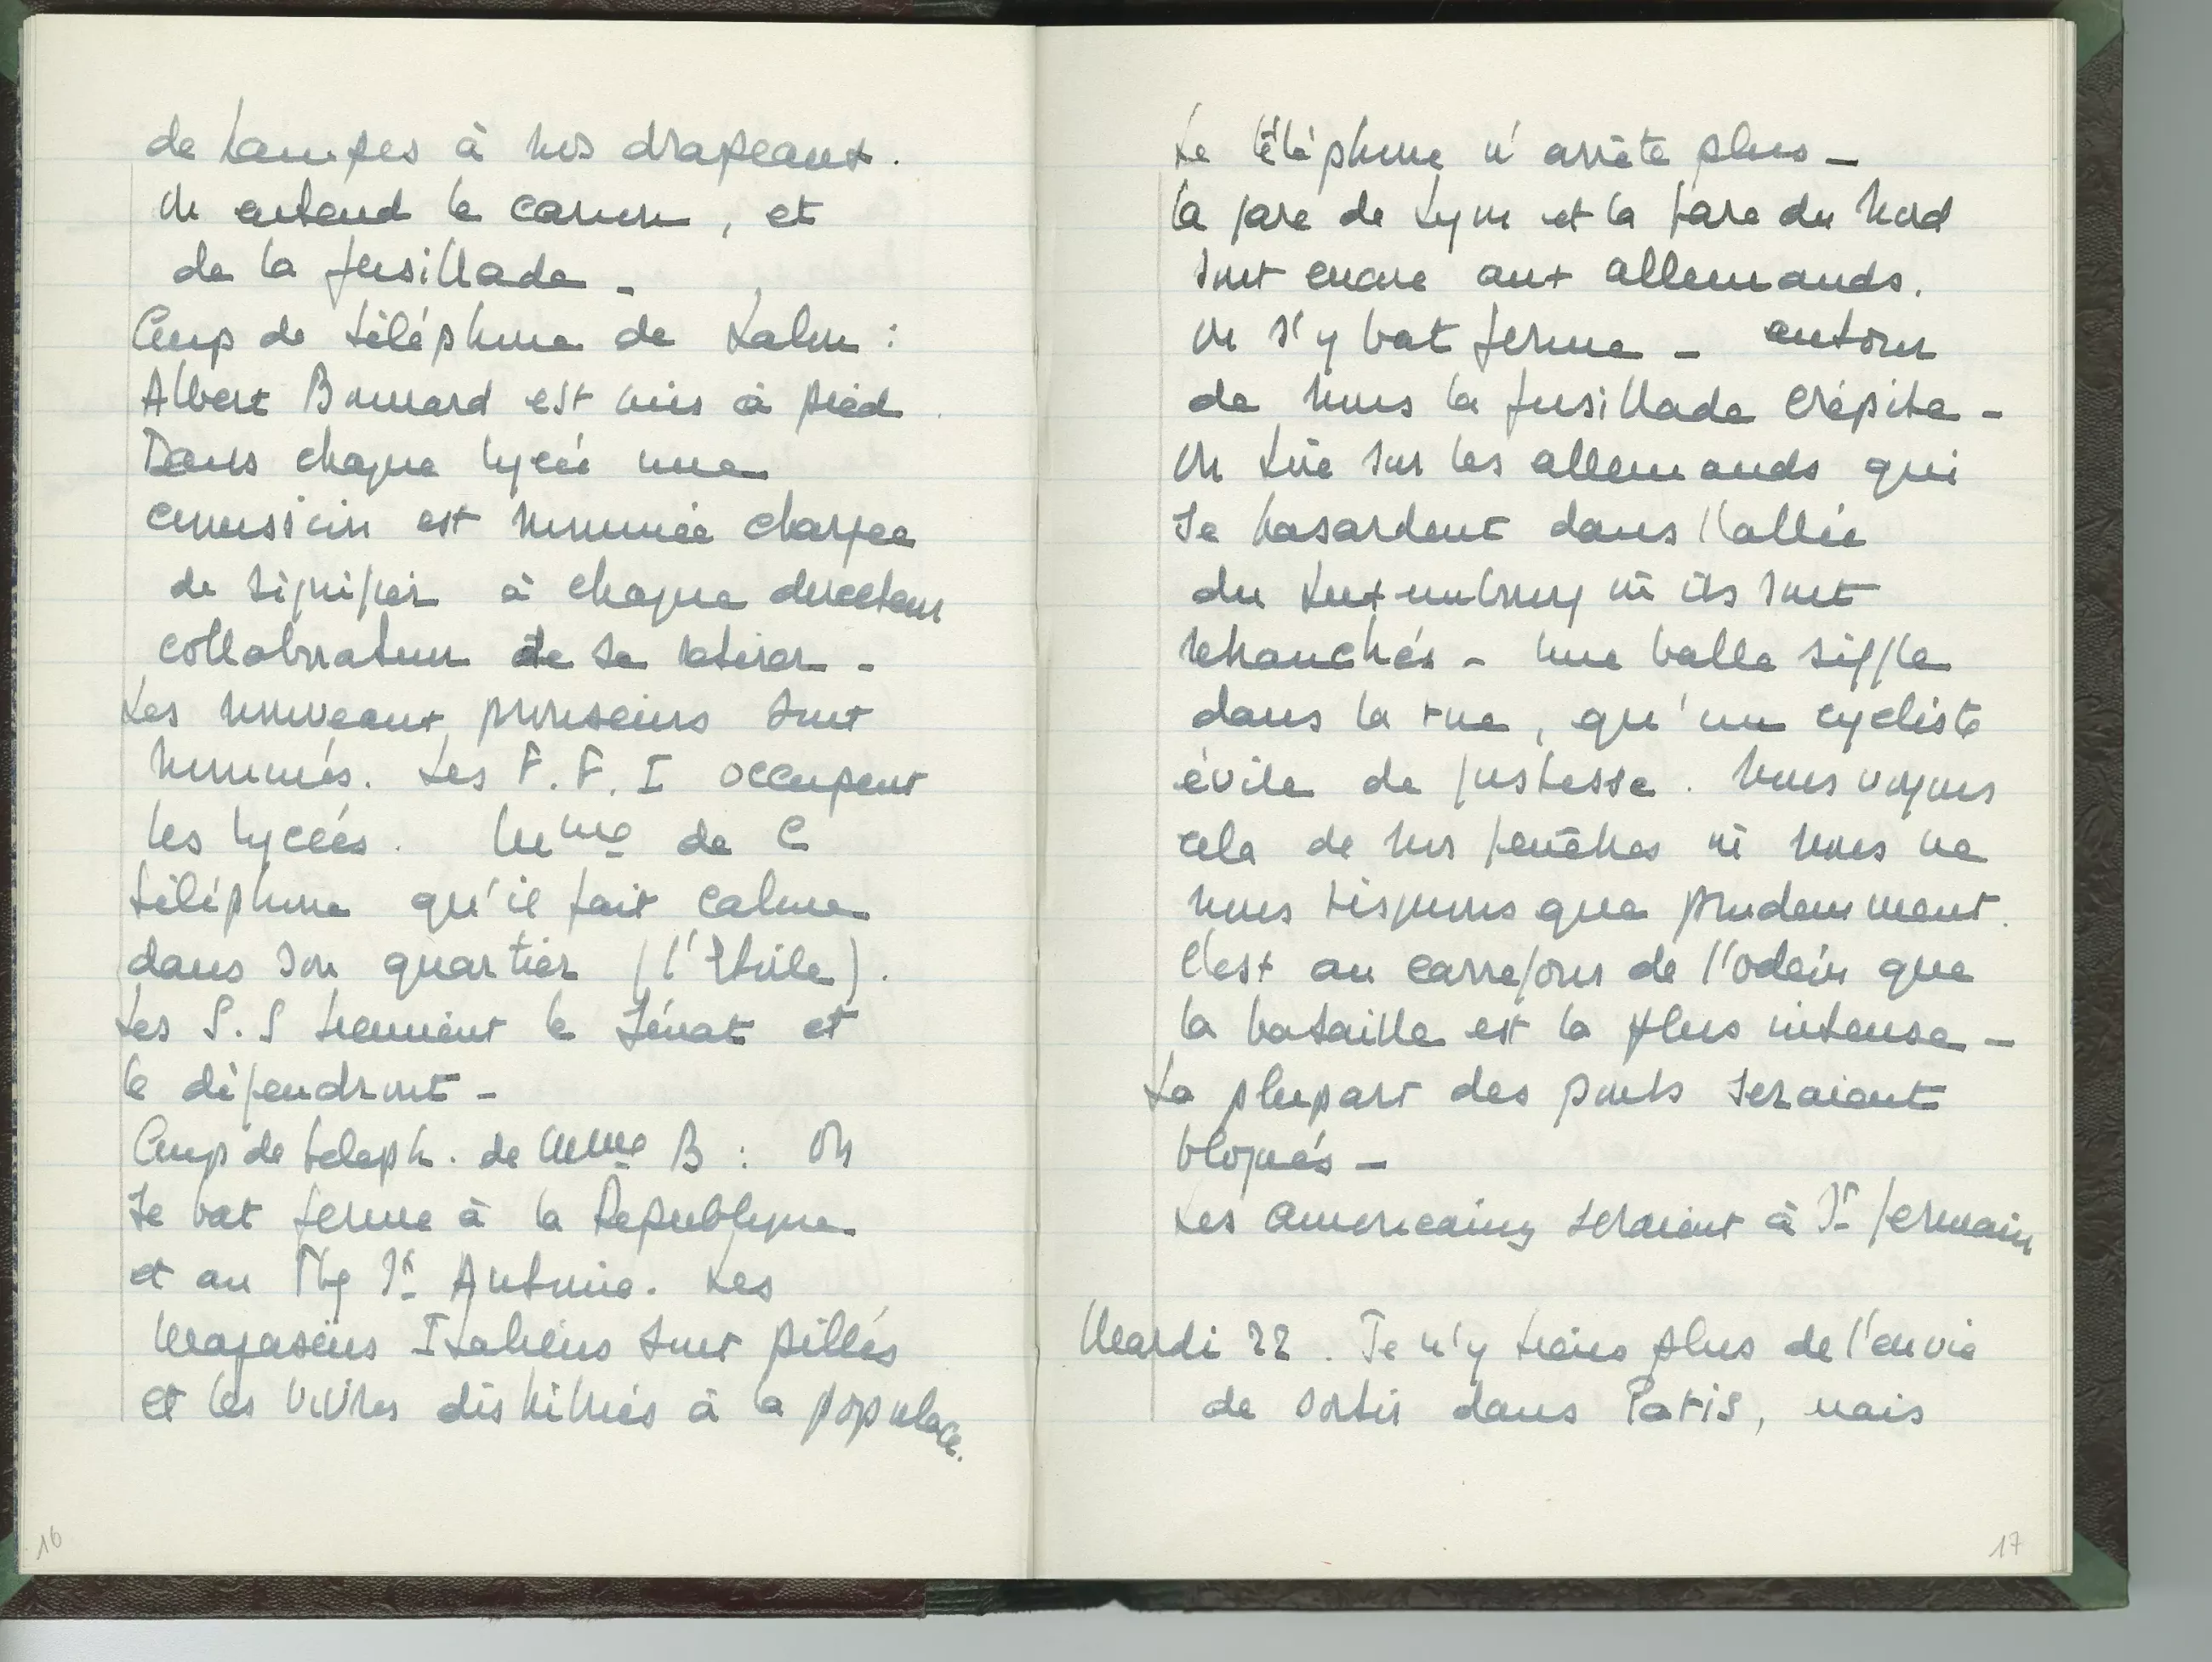 de hampes à nos drapeaux.
On entend le canon, et
de la fusillade -
Coup de téléphone de Lalou :
Albert Bonnard est mis à pied.
Dans chaque lycée une
commission est nommée chargée
de signifier à chaque directeur
collaborateur de se retirer -
Les nouveaux proviseurs sont
nommés. Les F.F.I occupent
les lycées. Mme de C
téléphone qu'il fait calme
dans son quartier (l'Etoile).
Les S.S tiennent le Sénat et
le défendront -
Coup de teleph. de Mme B : On
se bat ferme à la Republique
et au Fbg St Antoine. Les
Magasins Italiens sont pillés
et les vivres distribués à la populace.
16
Le téléphone n'arrête plus -
la gare de Lyon et la gare du Nord
sont encore aux allemands.
On s'y bat ferme - autour
de nous la fusillade crépite -
On tire sur les allemands qui
se hasardent dans l'allée
du Luxembourg où ils sont
retranchés - Une balle siffle
dans la rue, qu'un cycliste
évite de justesse. Nous voyons
cela de nos fenêtres où nous ne
nous risquons que prudemment.
C'est au carrefour de l'odéon que
la bataille est la plus intense -
La plupart des ponts seraient
bloqués -
Les americains seraient à St Germain
Mardi 22. Je n'y tiens plus de l'envie
de sortir dans Paris, mais
17